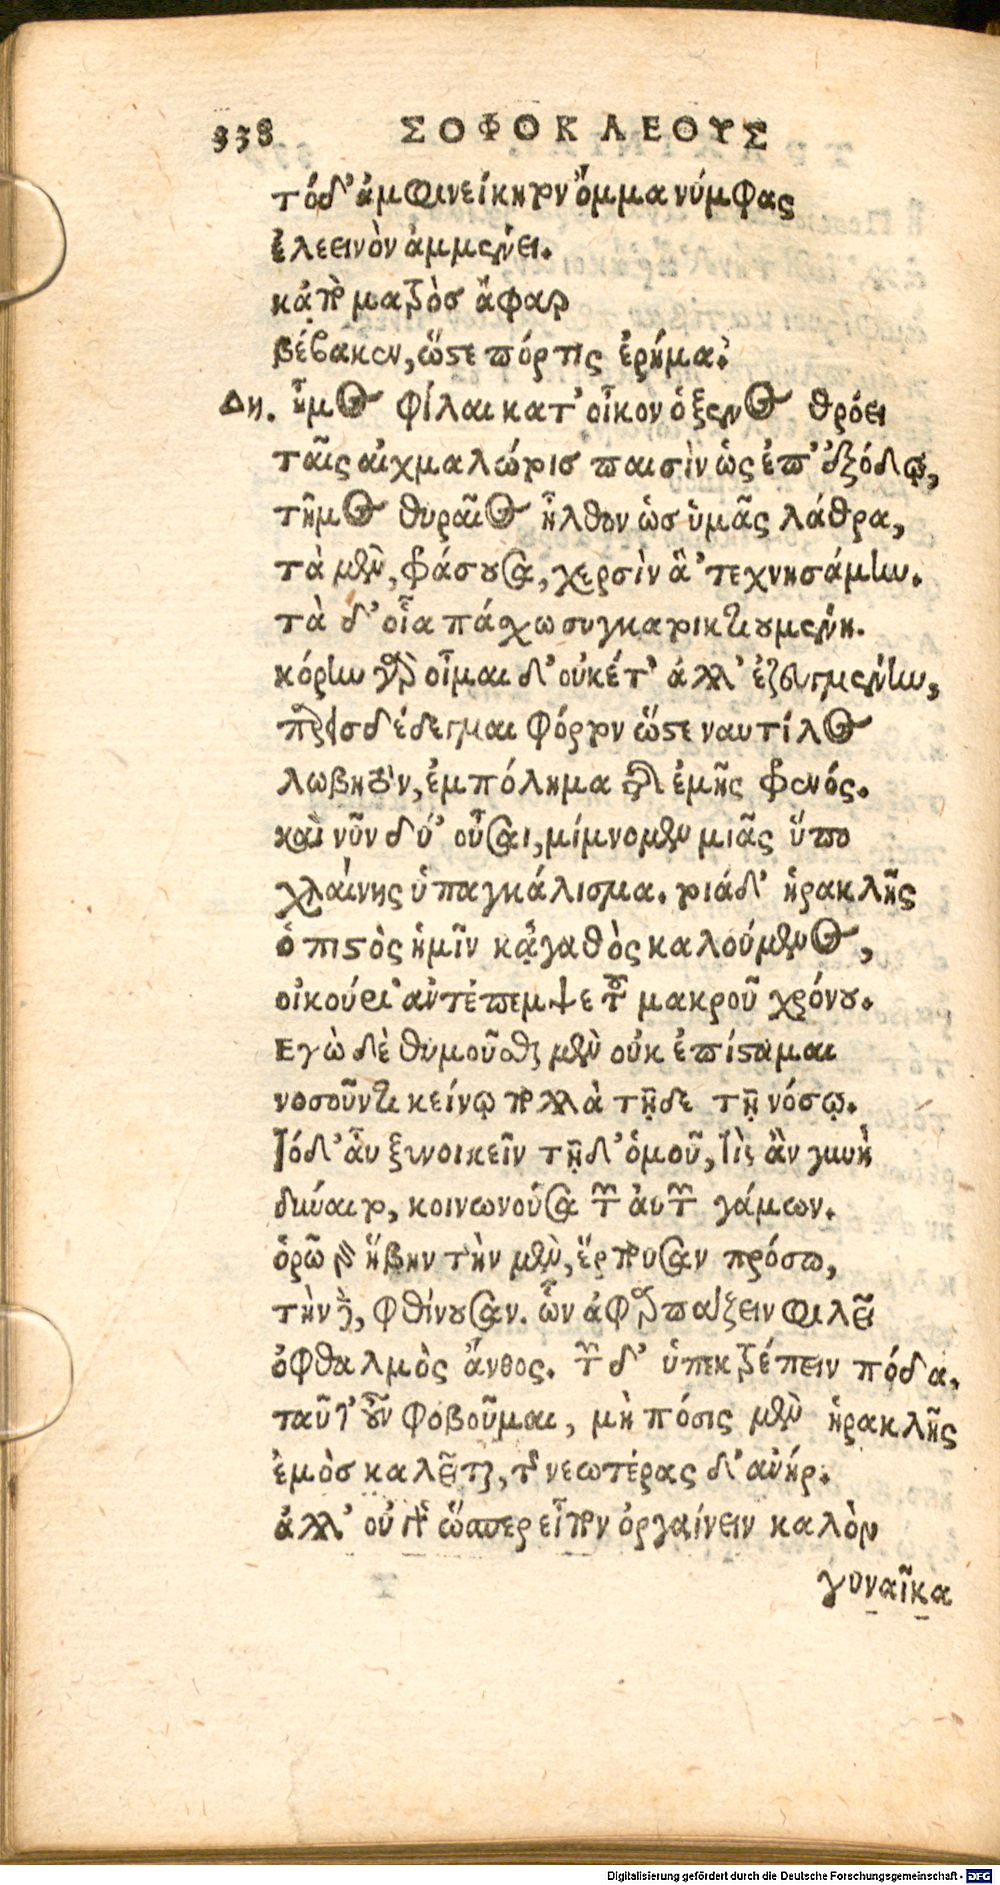 338 ΣΟΦΟΚΛΕΟΥΣ
τόδ' ἀμφινείκητον ὄμμα νύμφας
ἐλεεινὸν ἀμμένει.
κἀπὸ ματρὸσ ἄφαρ
βέβακεν, ὥστε πόρτις ἐρήμα.
Δη. ἦμος φίλαι κατ' οἶκον ὁ ξένος θρόει
ταῖς αἰχμαλώτοισ παισὶν ὡς ἐπ' ἐξόδῳ,
τῆμος θυραῖος ἦλθον ὡσ ὑμᾶς λάθρα,
τὰ μὲν, φράσουσα, χερσὶν ἃ 'τεχνησάμην.
τὰ δ' οἷα πάσχω συγκατοικτιουμένη.
κόρην γὰρ οἶμαι δ' οὐκέτ' ἀλλ' ἐζευγμένην,
παρεισδέδεγμαι φόρτον ὥστε ναυτίλος
λωβητὸν, ἐμπόλημα τῆς ἐμῆς φρενός.
καὶ νῦν δύ' οὖσαι, μίμνομεν μιᾶς ὕπο
χλαίνης ὑπαγκάλισμα. τοιάδ' ἡρακλῆς
ὁ πιστὸς ἡμῖν κἀγαθὸς καλούμενος,
οἰκούρι' ἀντέπεμψε τοῦ μακροῦ χρόνου.
Εγὼ δὲ θυμοῦσθαι μὲν οὐκ ἐπίσταμαι
νοσοῦντι κείνῳ πολλὰ τῇδε τῇ νόσῳ.
τόδ' αὖ ξυνοικεῖν τῇδ' ὁμοῦ, τίς ἂν γυνὴ
δύναιτο, κοινωνοῦσα τῶν αὐτῶν γάμων.
ὁρῶ γὰρ ἥβην τὴν μὲν, ἕρπουσαν πρόσω,
τὴν δὲ, φθίνουσαν. ὧν ἀφαρπάζειν φιλεῖ
ὀφθαλμὸς ἄνθος. τῶν δ' ὑπεκτρέπειν πόδα.
ταῦτ' οὖν φοβοῦμαι, μὴ πόσις μὲν ἡρακλῆς
ἐμὸσ καλεῖται, τῆς νεωτέρας δ' ἀνήρ.
ἀλλ' οὐ γὰρ ὥσπερ εἶπον ὀργαίνειν καλὸν
γυναῖκα
Digitalisierung gefördert durch die Deutsche Forschungsgemeinschaft - DFG